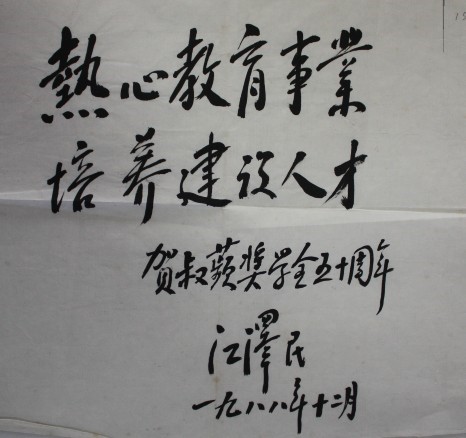 熱心教育事業
培养建设人才
賀叔蘋奖学金五十周年
江澤民
一九八八年十二月